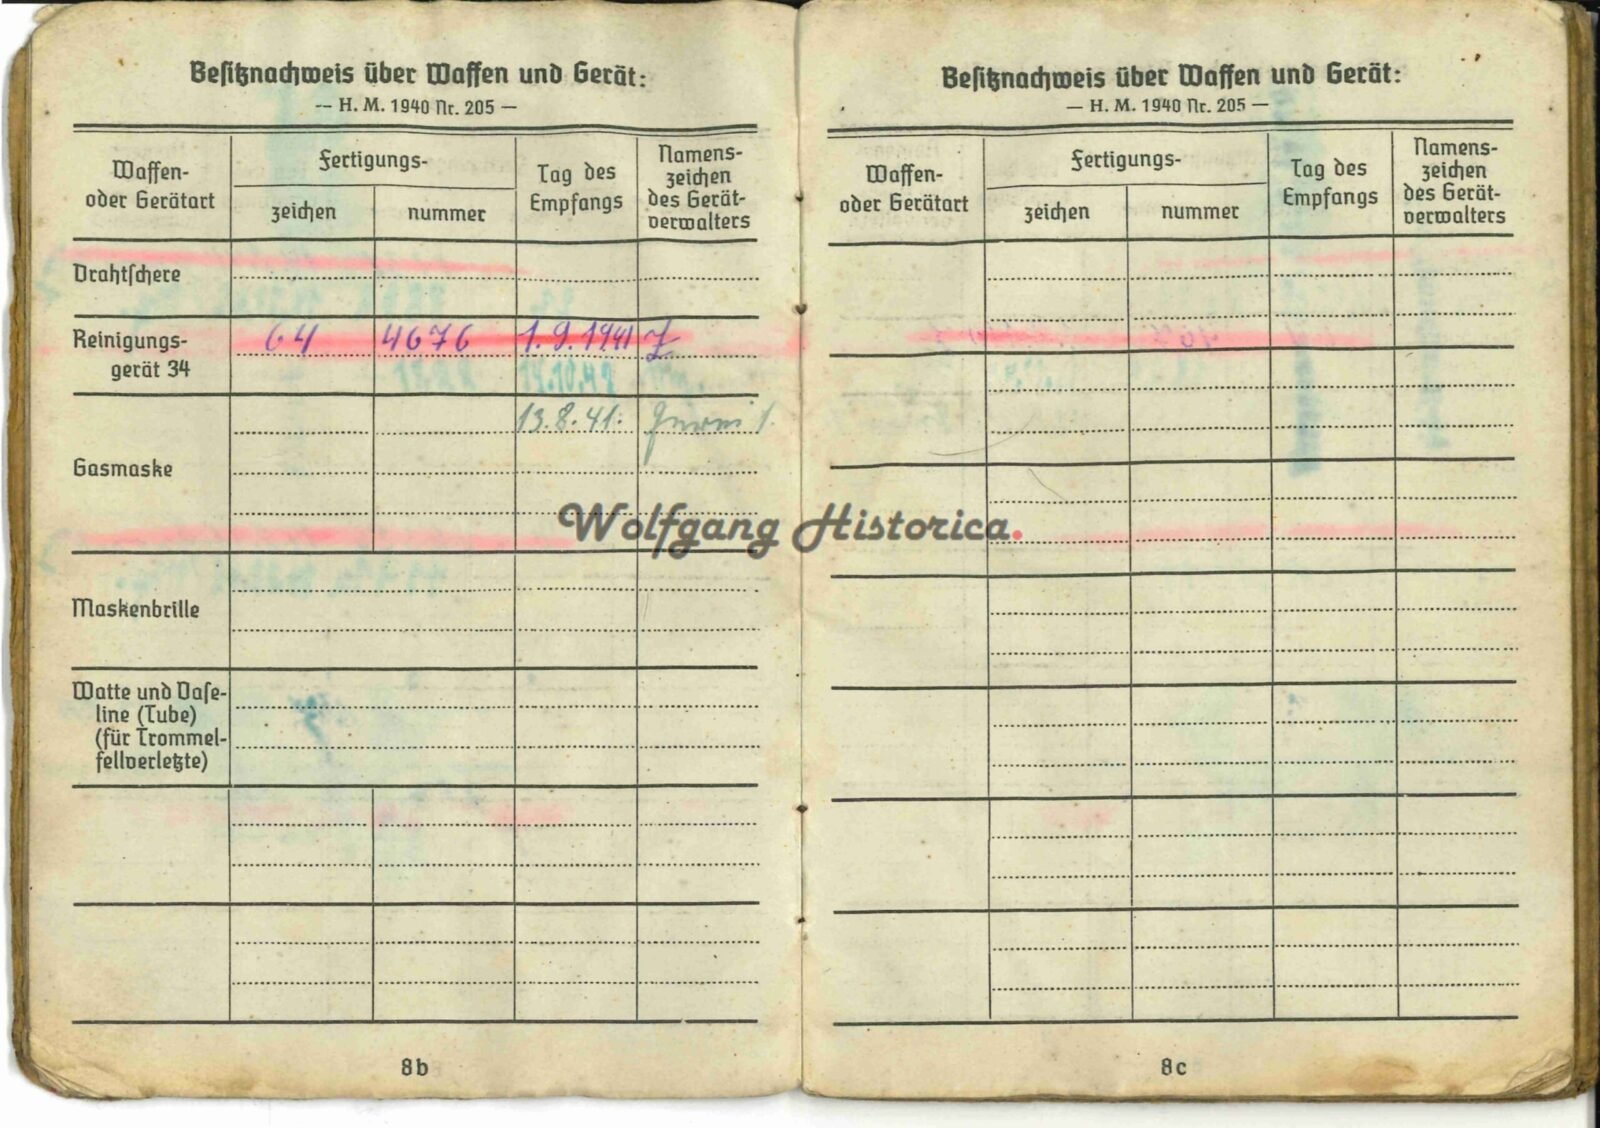 Besitznachweis über Waffen und Gerät:
— H. M. 1940 Nr. 205 —
Waffen-
oder Gerätart
Fertigungs-
zeichen
nummer
Tag des
Empfangs
Namens-
zeichen
des Gerät-
verwalters
Drahtschere
Reinigungs-
gerät 34
64 4676 1.9.1941
14.10.42
13.8.41.
Gasmaske
Maskenbrille
Watte und Vase-
line (Tube)
(für Trommel-
fellverletzte)
8b
Besitznachweis über Waffen und Gerät:
— H. M. 1940 Nr. 205 —
Waffen-
oder Gerätart
Fertigungs-
zeichen
nummer
Tag des
Empfangs
Namens-
zeichen
des Gerät-
verwalters
8c
Wolfgang Historica.